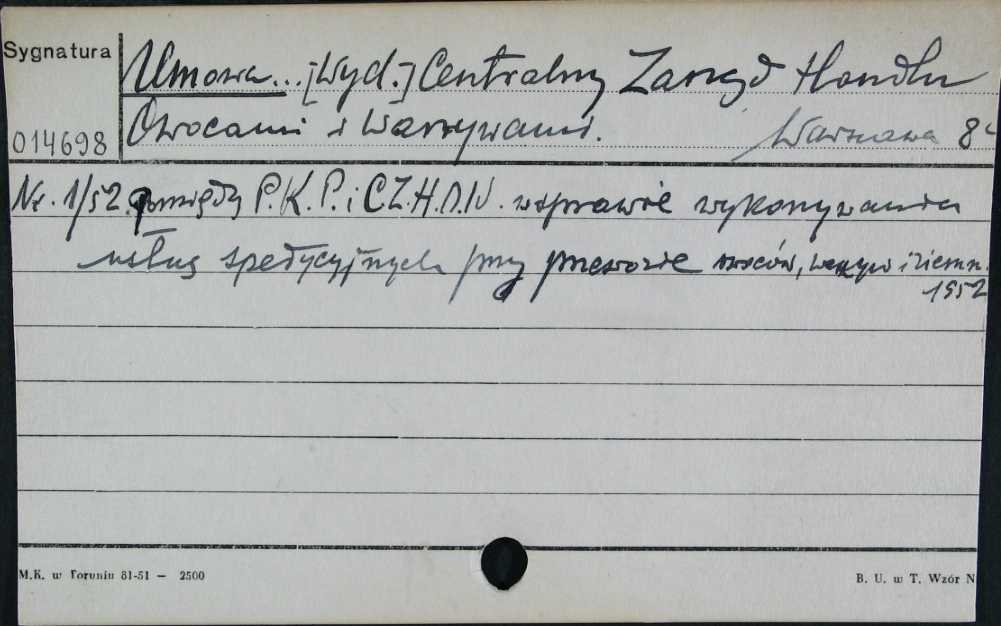 Sygnatura
Umowa... [Wyd.] Centralny Zarząd Handlu
014698 Owocami i Warzywami. Warszawa 8°
Nr. 1/52 pomiędzy P.K.P. i C.Z.H.O.W. w sprawie wykonywania
usług spedycyjnych przy przewozie owoców, warzyw i ziemn.
1952
M.K. w Toruniu 81-51 — 2500
B. U. w T. Wzór N